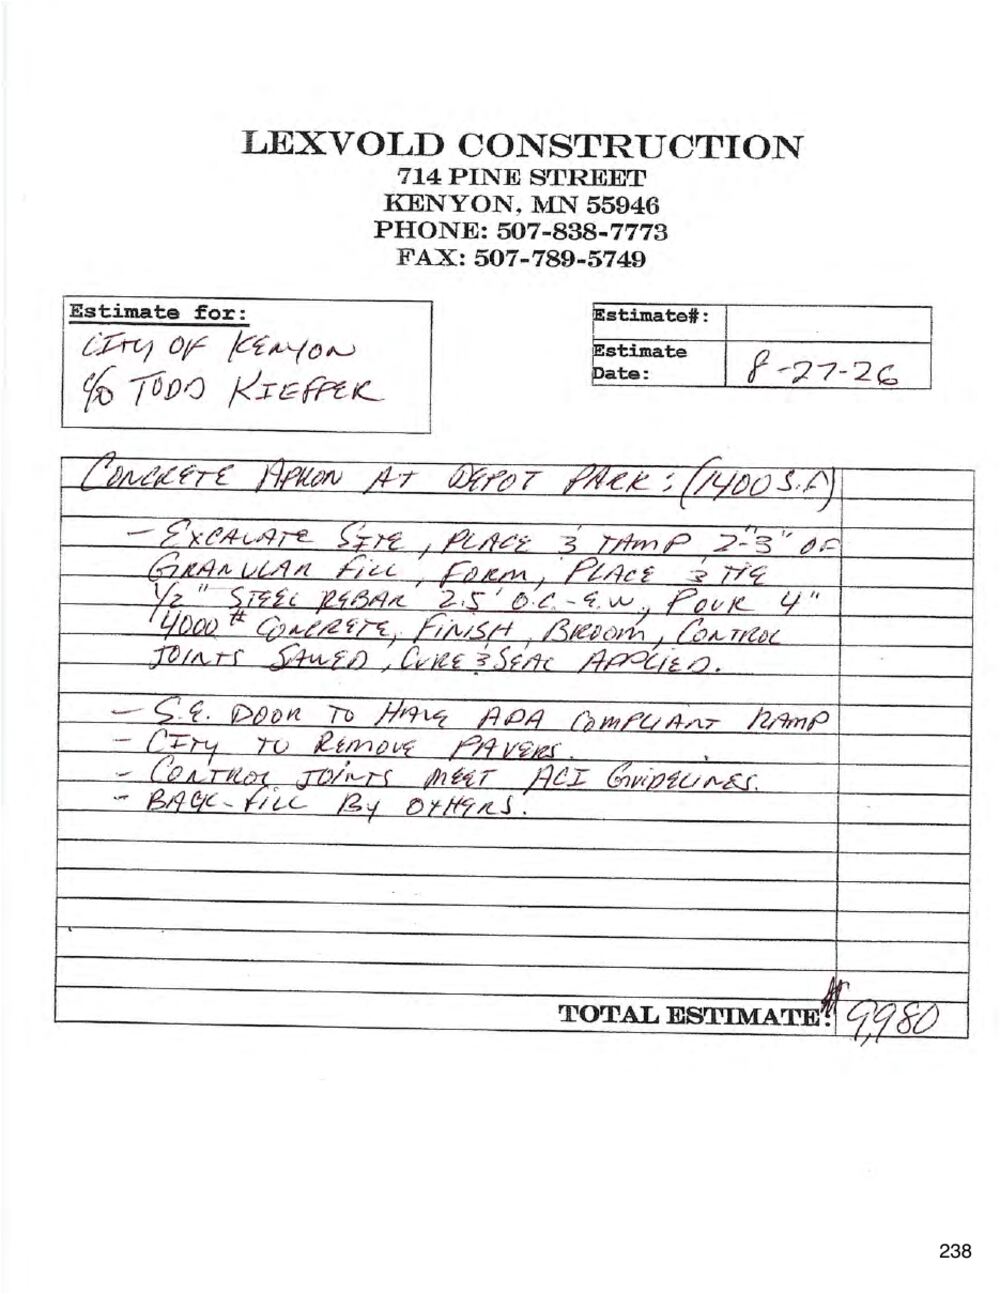 LEXVOLD CONSTRUCTION
714 PINE STREET
KENYON, MN 55946
PHONE: 507-838-7773
FAX: 507-789-5749
Estimate for:
CITY OF KENYON
c/o TODD KIEFFER
Estimate#:
Estimate
Date:
8-27-26
CONCRETE APRON AT DEPOT PARK: (1400 S.F)
- EXCAVATE SITE, PLACE & TAMP 2"-3" OF
GRANULAR FILL, FORM, PLACE & TIE
1/2" STEEL REBAR 2.5' O.C.-E.W., POUR 4"
4000# CONCRETE, FINISH, BROOM, CONTROL
JOINTS SAWED, CURE & SEAL APPLIED.
- S.E. DOOR TO HAVE ADA COMPLIANT RAMP
- CITY TO REMOVE PAVERS.
- CONTROL JOINTS MEET ACI GUIDELINES.
- BACK-FILL BY OTHERS.
TOTAL ESTIMATE: $ 9,980
238